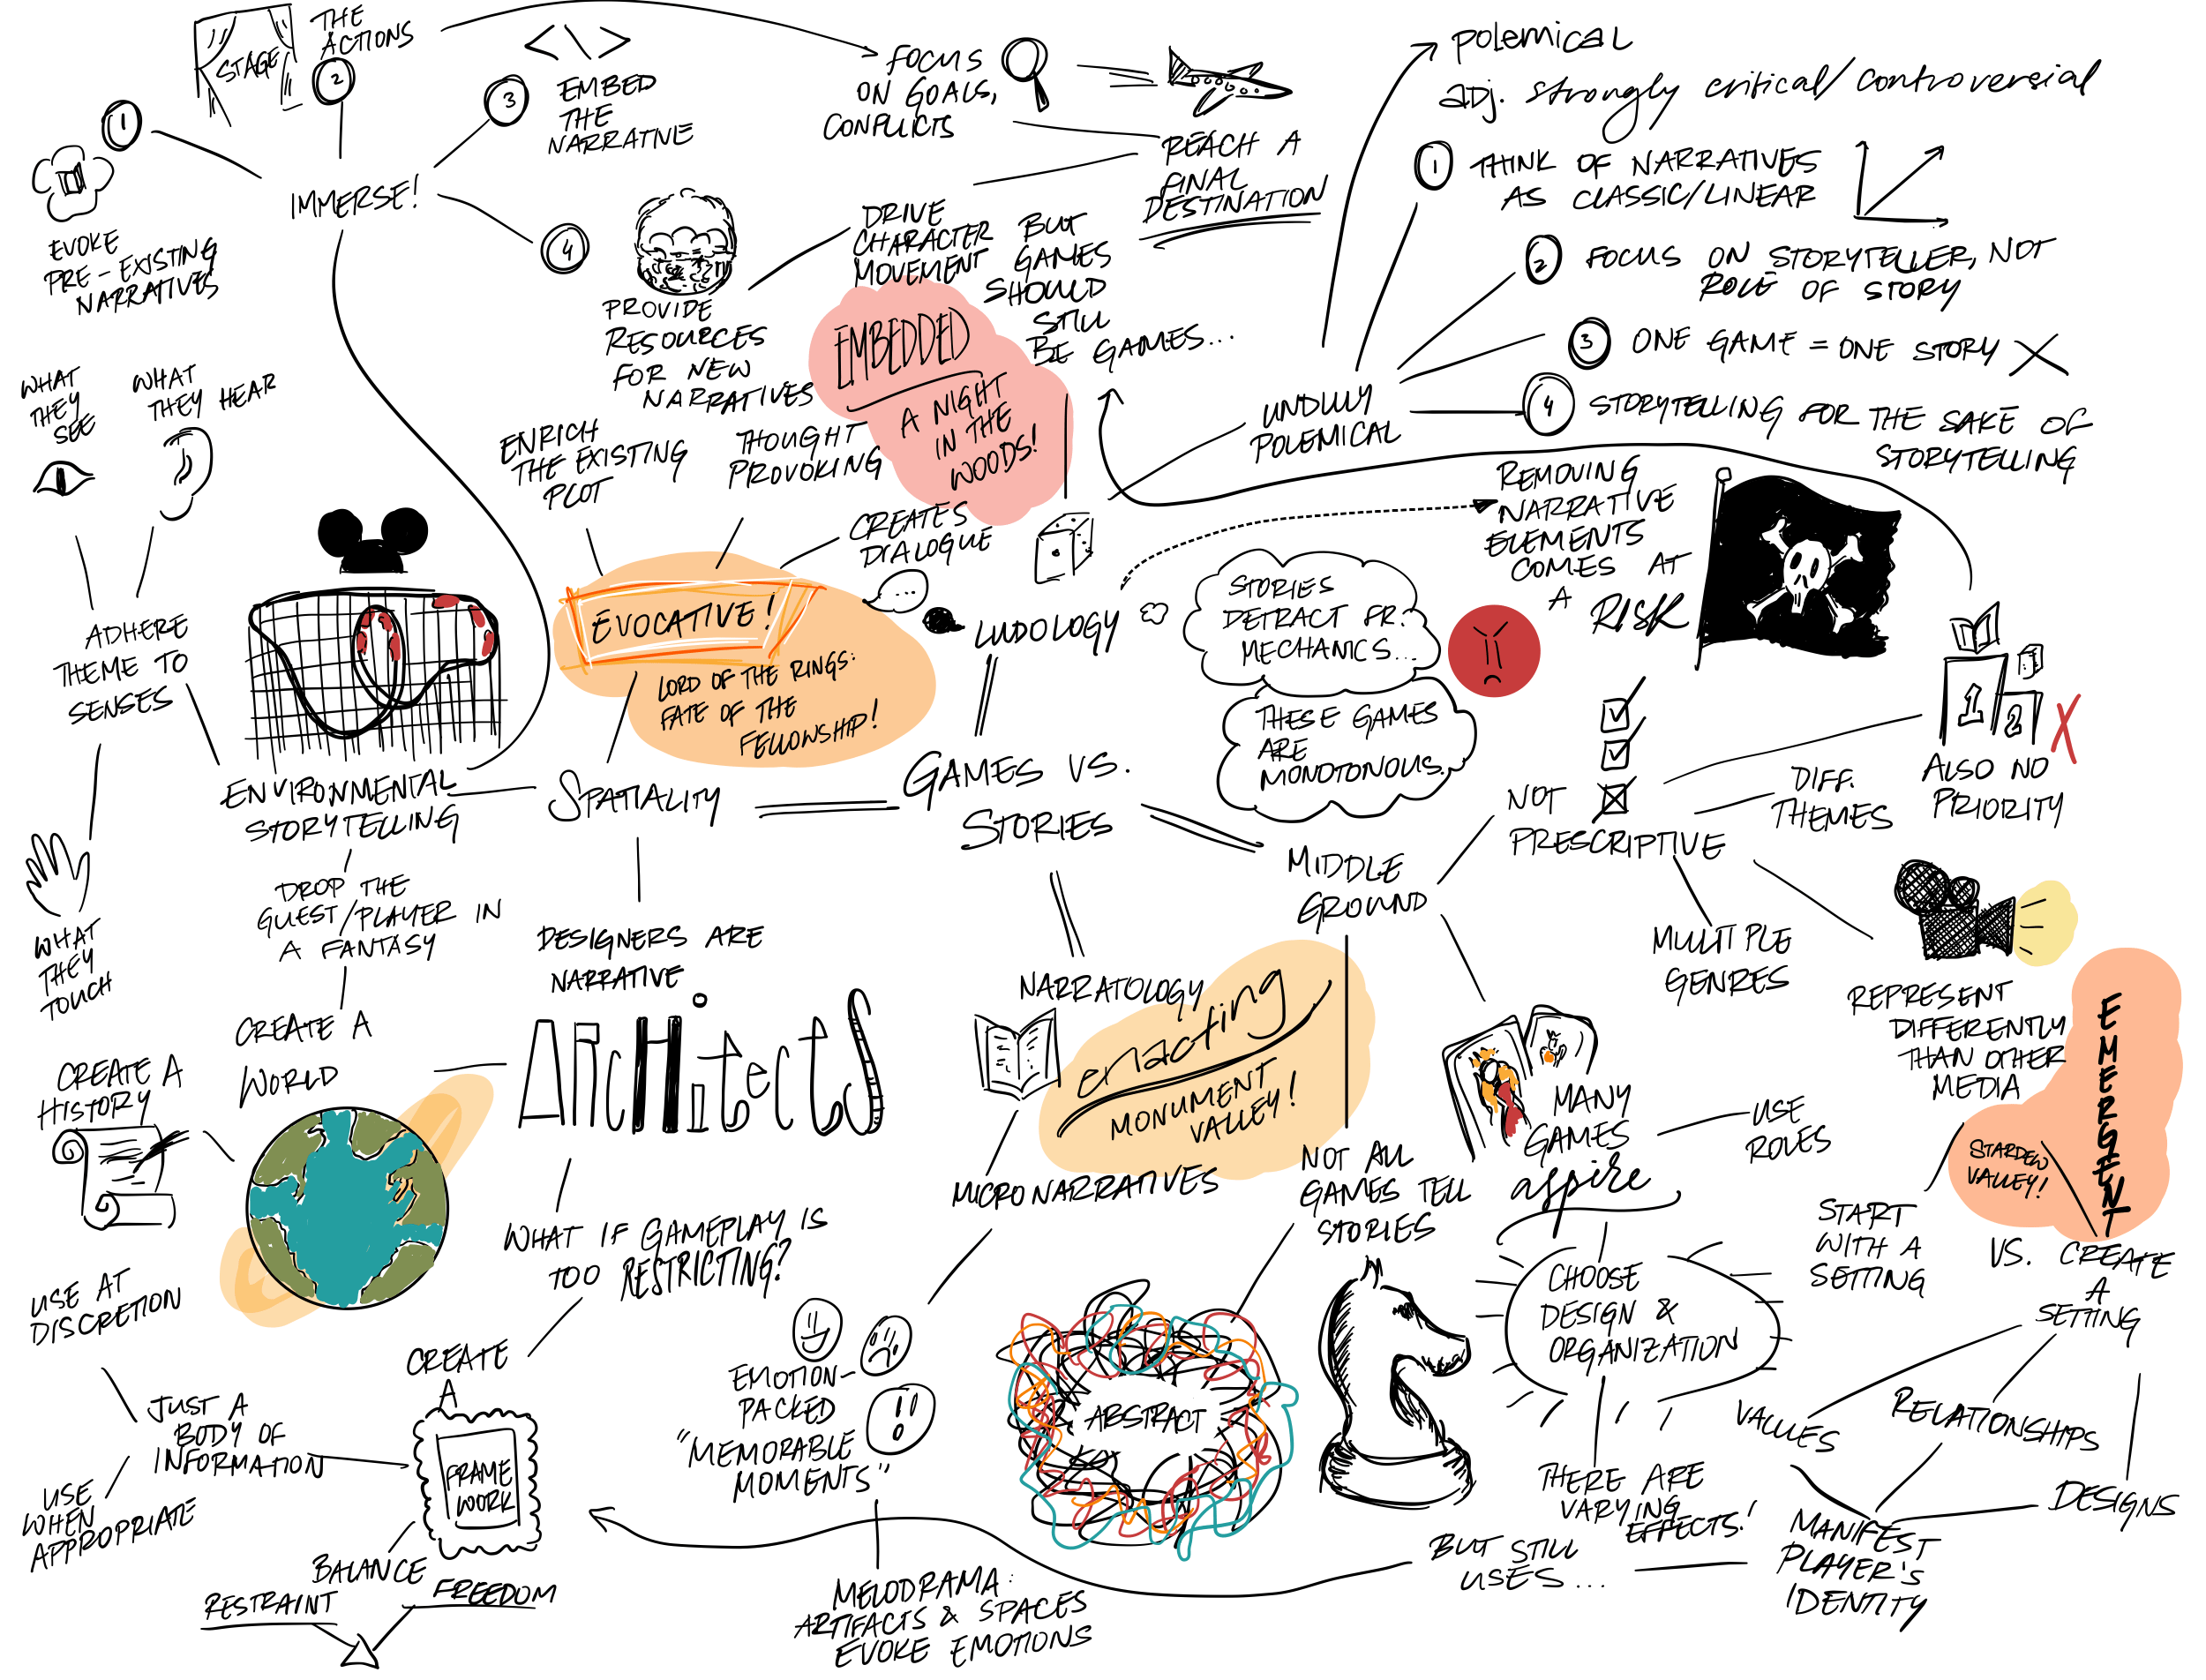 STAGE
THE
ACTIONS
2
1
3
<\>
EMBED
THE
NARRATIVE
IMMERSE!
4
EVOKE
PRE-EXISTING
NARRATIVES
PROVIDE
RESOURCES
FOR NEW
NARRATIVES
FOCUS
ON GOALS,
CONFLICTS
REACH A
FINAL
DESTINATION
DRIVE
CHARACTER
MOVEMENT
BUT
GAMES
SHOULD
STILL
BE GAMES...
EMBEDDED
A NIGHT
IN THE
WOODS!
polemical
adj. strongly critical/controversial
1
THINK OF NARRATIVES
AS CLASSIC/LINEAR
2
FOCUS ON STORYTELLER, NOT
ROLE OF STORY
3
ONE GAME = ONE STORY
4
STORYTELLING FOR THE SAKE OF
STORYTELLING
UNDULY
POLEMICAL
WHAT
THEY
SEE
WHAT
THEY HEAR
ADHERE
THEME TO
SENSES
WHAT
THEY
TOUCH
ENRICH
THE EXISTING
PLOT
THOUGHT
PROVOKING
CREATES
DIALOGUE
...
EVOCATIVE!
LORD OF THE RINGS:
FATE OF THE
FELLOWSHIP!
LUDOLOGY
STORIES
DETRACT FR.
MECHANICS...
THESE GAMES
ARE
MONOTONOUS.
REMOVING
NARRATIVE
ELEMENTS
COMES AT
A RISK
ENVIRONMENTAL
STORYTELLING
SPATIALITY
GAMES VS.
STORIES
MIDDLE
GROUND
NOT
PRESCRIPTIVE
1
2
ALSO NO
PRIORITY
DIFF.
THEMES
MULTIPLE
GENRES
REPRESENT
DIFFERENTLY
THAN OTHER
MEDIA
DROP THE
GUEST/PLAYER IN
A FANTASY
CREATE A
WORLD
DESIGNERS ARE
NARRATIVE
ARcHitectS
CREATE A
HISTORY
USE AT
DISCRETION
JUST A
BODY OF
INFORMATION
USE
WHEN
APPROPRIATE
WHAT IF GAMEPLAY IS
TOO RESTRICTING?
CREATE
A
FRAME
WORK
BALANCE
RESTRAINT
FREEDOM
NARRATOLOGY
enacting
MONUMENT
VALLEY!
MICRONARRATIVES
EMOTION-
PACKED
"MEMORABLE
MOMENTS"
MELODRAMA:
ARTIFACTS & SPACES
EVOKE EMOTIONS
NOT ALL
GAMES TELL
STORIES
ABSTRACT
MANY
GAMES
aspire
USE
ROLES
CHOOSE
DESIGN &
ORGANIZATION
THERE ARE
VARYING
EFFECTS!
EMERGENT
STARDEW
VALLEY!
START
WITH A
SETTING
VS. CREATE
A
SETTING
VALUES
RELATIONSHIPS
DESIGNS
MANIFEST
PLAYER'S
IDENTITY
BUT STILL
USES...